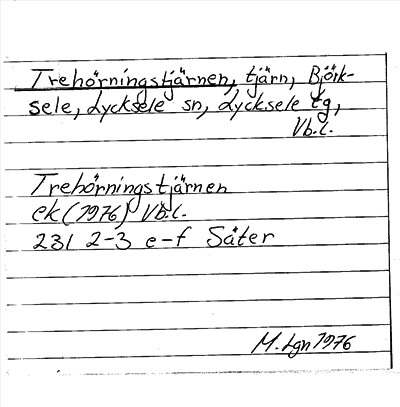 Trehörningstjärnen, tjärn, Björk-
sele, Lycksele sn, Lycksele tg,
Vb.l.
Trehörningstjärnen
ek (1976) Vb.l.
231 2-3 e-f Säter
M. Lgn 1976